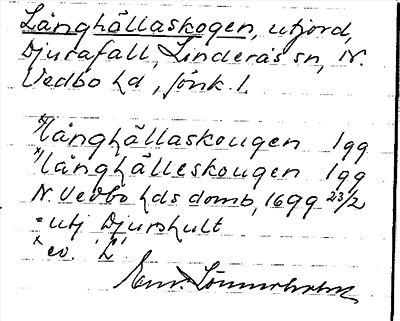 Långhällaskogen, utjord,
Djurafall, Linderås sn, N.
Vedbo hd, Jönk. l.
x/långhällaskougen 1gg
x/långhälleskougen 1gg
N. Vedbo hds domb, 1699 23/2
= utj Djurshult
x ev. "L"